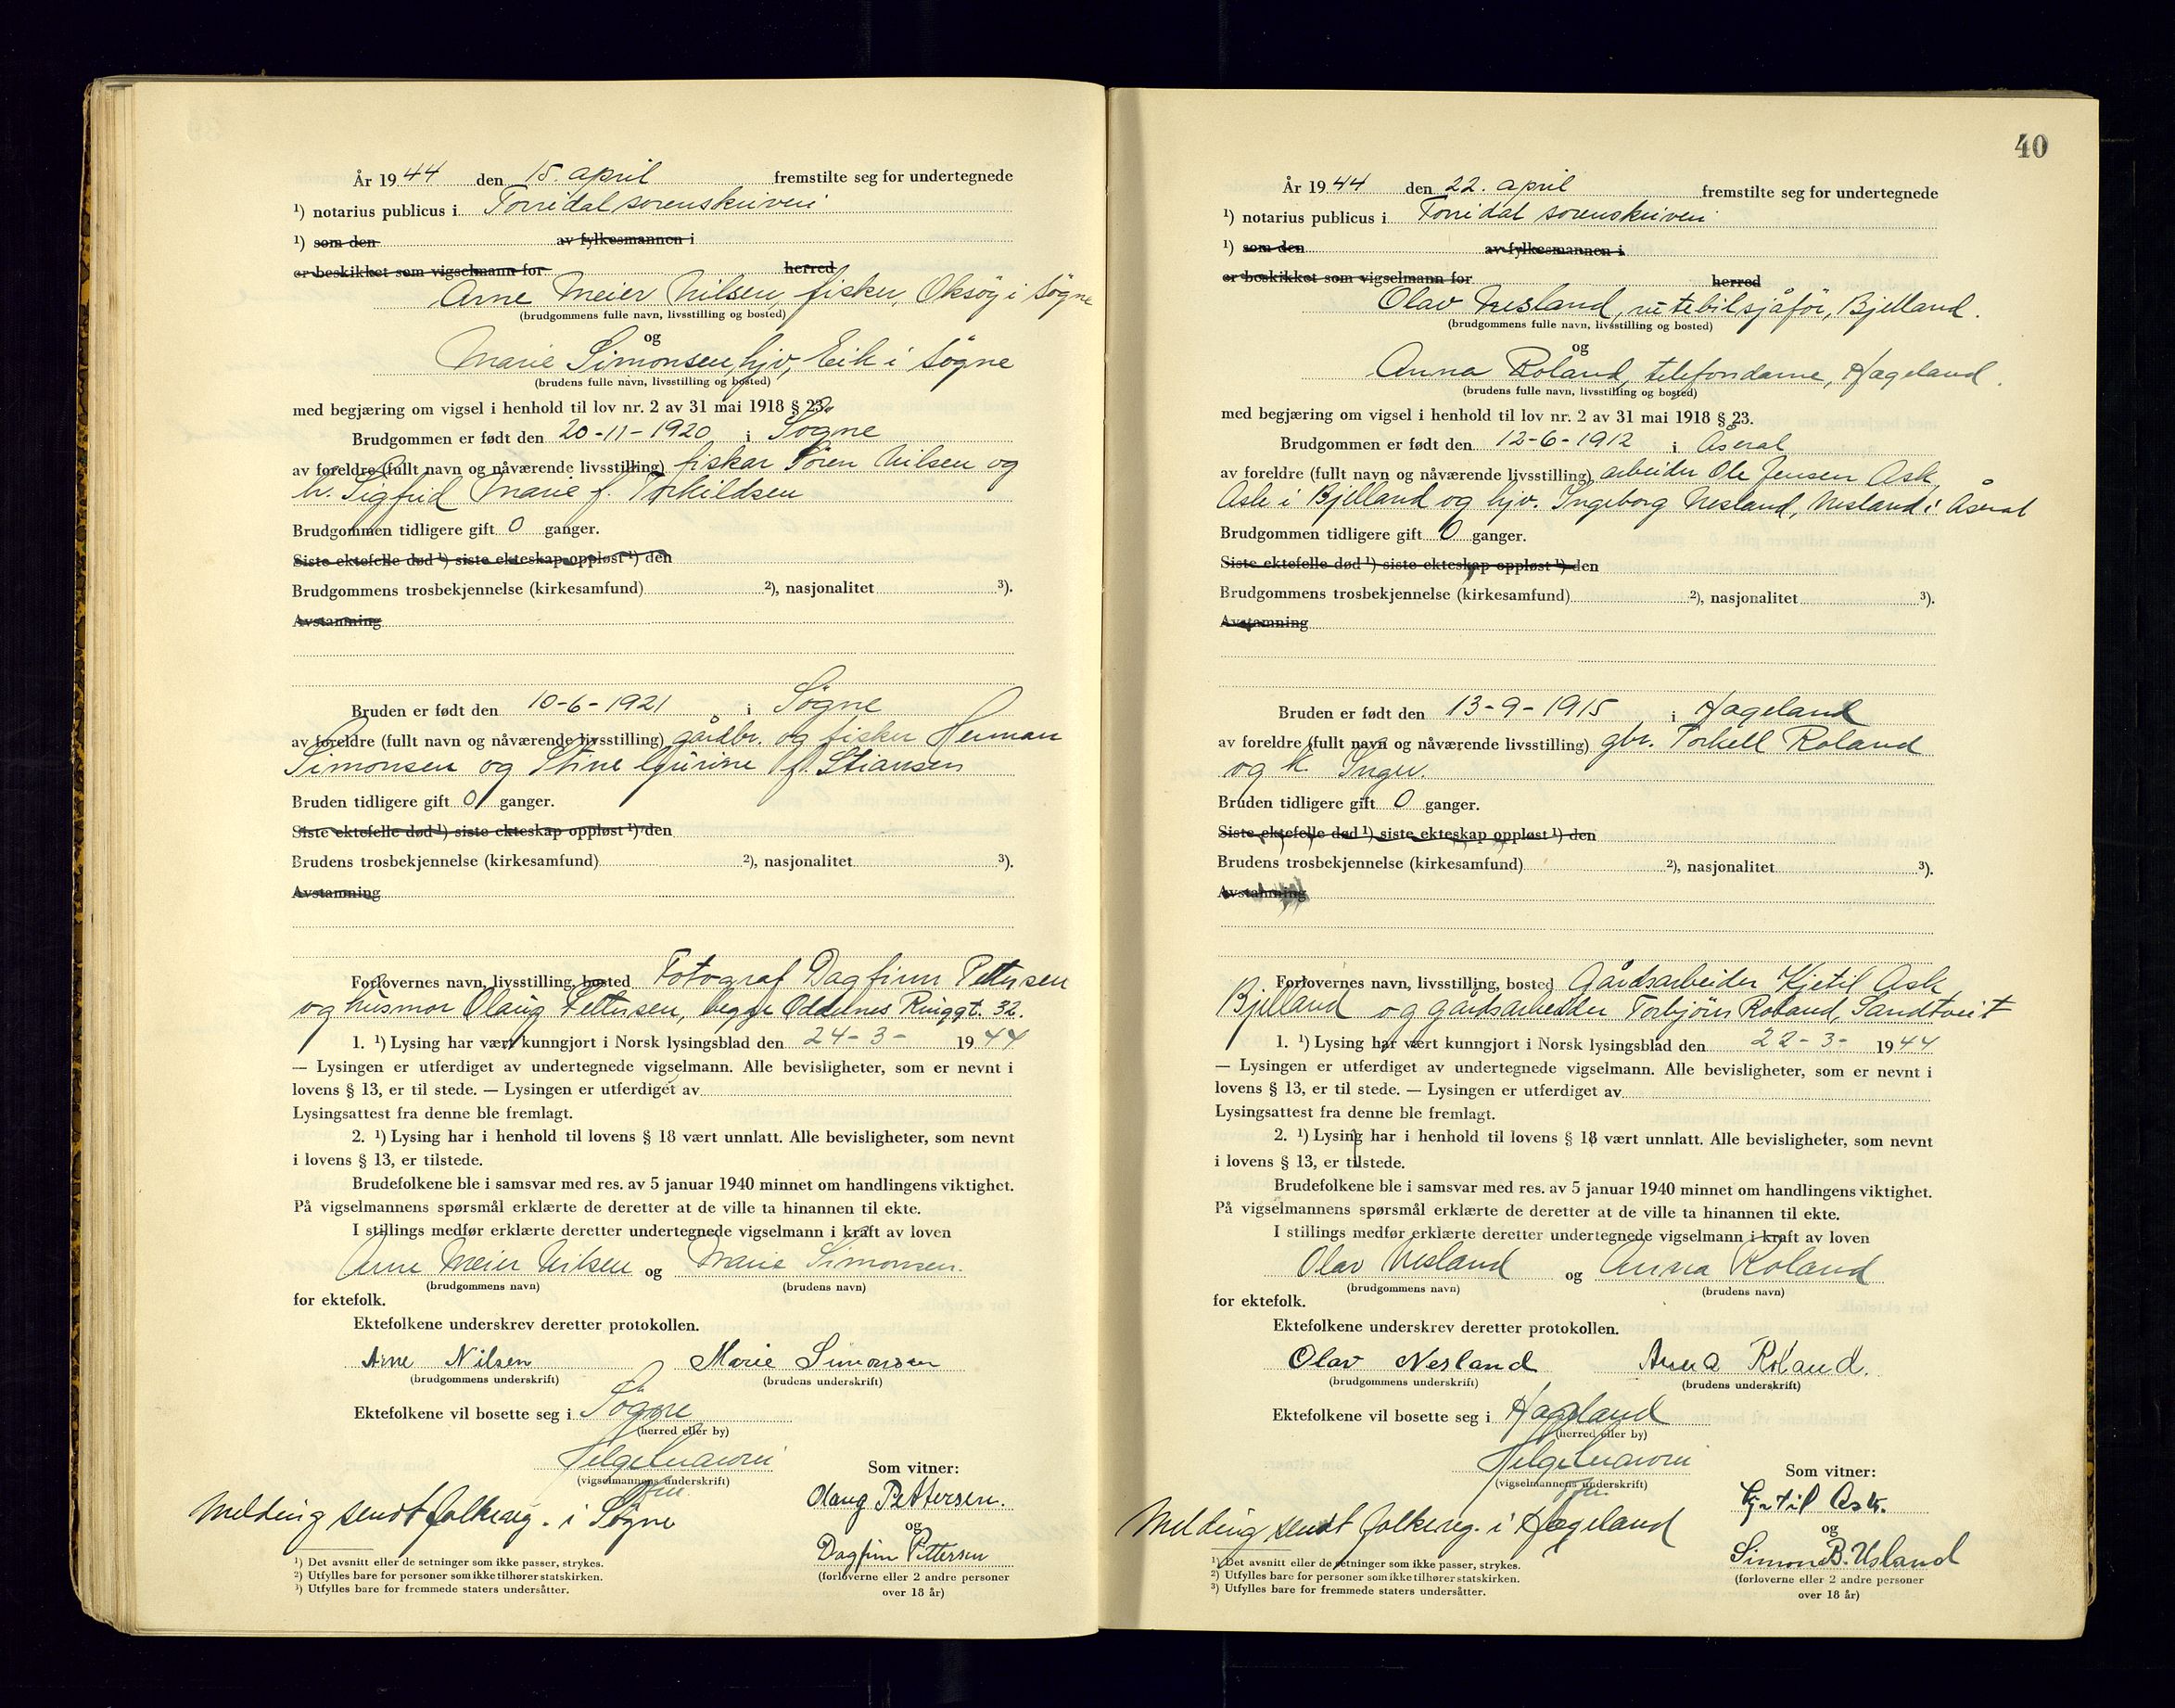 År 1944 den 15. april fremstilte seg for undertegnede
¹) notarius publicus i Torridal sorenskriveri
¹) som den av fylkesmannen i
er beskikket som vigselmann for herred
Arne Meier Nilsen, fisker, Oksøy i Søgne
(brudgommens fulle navn, livsstilling og bosted)
og
Marie Simonsen, hjv, Eik i Søgne
(brudens fulle navn, livsstilling og bosted)
med begjæring om vigsel i henhold til lov nr. 2 av 31 mai 1918 § 23.
Brudgommen er født den 20-11-1920 i Søgne
av foreldre (fullt navn og nåværende livsstilling) fisker Søren Nilsen og
h. Sigfrid Marie f. Torkildsen
Brudgommen tidligere gift 0 ganger.
Siste ektefelle død ¹) siste ekteskap oppløst ¹) den
Brudgommens trosbekjennelse (kirkesamfund) ²), nasjonalitet ³).
Avstamning
Bruden er født den 10-6-1921 i Søgne
av foreldre (fullt navn og nåværende livsstilling) gårdbr. og fisker Herman
Simonsen og Stine Gurine f. Stiansen
Bruden tidligere gift 0 ganger.
Siste ektefelle død ¹) siste ekteskap oppløst ¹) den
Brudens trosbekjennelse (kirkesamfund) ²), nasjonalitet ³).
Avstamning
Forlovernes navn, livsstilling, bosted Fotograf Dagfinn Pettersen
og husmor Olaug Pettersen, begge Oddernes Ringgt. 32.
1. ¹) Lysing har vært kunngjort i Norsk lysingsblad den 24-3- 1944
— Lysingen er utferdiget av undertegnede vigselmann. Alle bevisligheter, som er nevnt i
lovens § 13, er til stede. — Lysingen er utferdiget av
Lysingsattest fra denne ble fremlagt.
2. ¹) Lysing har i henhold til lovens § 18 vært unnlatt. Alle bevisligheter, som nevnt
i lovens § 13, er tilstede.
Brudefolkene ble i samsvar med res. av 5 januar 1940 minnet om handlingens viktighet.
På vigselmannens spørsmål erklærte de deretter at de ville ta hinannen til ekte.
I stillings medfør erklærte deretter undertegnede vigselmann i kraft av loven
Arne Meier Nilsen og Marie Simonsen.
(brudgommens navn) (brudens navn)
for ektefolk.
Ektefolkene underskrev deretter protokollen.
Arne Nilsen Marie Simonsen
(brudgommens underskrift) (brudens underskrift)
Ektefolkene vil bosette seg i Søgne
(herred eller by)
(vigselmannens underskrift)
Som vitner:
Olaug Pettersen.
Melding sendt folkereg. i Søgne
og
Dagfinn Pettersen
(forloverne eller 2 andre personer
over 18 år)
¹) Det avsnitt eller de setninger som ikke passer, strykes.
²) Utfylles bare for personer som ikke tilhører statskirken.
³) Utfylles bare for fremmede staters undersåtter.
40
År 1944 den 22. april fremstilte seg for undertegnede
¹) notarius publicus i Torridal sorenskriveri
¹) som den av fylkesmannen i
er beskikket som vigselmann for herred
Olav Nesland, rutebilsjåfør, Bjelland.
(brudgommens fulle navn, livsstilling og bosted)
og
Anna Roland, telefondame, Hægeland.
(brudens fulle navn, livsstilling og bosted)
med begjæring om vigsel i henhold til lov nr. 2 av 31 mai 1918 § 23.
Brudgommen er født den 12-6-1912 i Åseral
av foreldre (fullt navn og nåværende livsstilling) arbeider Ole Jensen Ask,
Ask i Bjelland og hjv. Ingeborg Nesland, Nesland i Åseral
Brudgommen tidligere gift 0 ganger.
Siste ektefelle død ¹) siste ekteskap oppløst ¹) den
Brudgommens trosbekjennelse (kirkesamfund) ²), nasjonalitet ³).
Avstamning
Bruden er født den 13-9-1915 i Hægeland
av foreldre (fullt navn og nåværende livsstilling) gbr. Torkell Roland
og h. Inger.
Bruden tidligere gift 0 ganger.
Siste ektefelle død ¹) siste ekteskap oppløst ¹) den
Brudens trosbekjennelse (kirkesamfund) ²), nasjonalitet ³).
Avstamning
Forlovernes navn, livsstilling, bosted Gårdsarbeider Kjetil Ask,
Bjelland og gårdsarbeider Torbjörn Roland, Sandtveit
1. ¹) Lysing har vært kunngjort i Norsk lysingsblad den 22-3- 1944
— Lysingen er utferdiget av undertegnede vigselmann. Alle bevisligheter, som er nevnt i
lovens § 13, er til stede. — Lysingen er utferdiget av
Lysingsattest fra denne ble fremlagt.
2. ¹) Lysing har i henhold til lovens § 18 vært unnlatt. Alle bevisligheter, som nevnt
i lovens § 13, er tilstede.
Brudefolkene ble i samsvar med res. av 5 januar 1940 minnet om handlingens viktighet.
På vigselmannens spørsmål erklærte de deretter at de ville ta hinannen til ekte.
I stillings medfør erklærte deretter undertegnede vigselmann i kraft av loven
Olav Nesland og Anna Roland
(brudgommens navn) (brudens navn)
for ektefolk.
Ektefolkene underskrev deretter protokollen.
Olav Nesland Anna Roland.
(brudgommens underskrift) (brudens underskrift)
Ektefolkene vil bosette seg i Hægeland
(herred eller by)
(vigselmannens underskrift)
Som vitner:
Kjetil Ask.
Melding sendt folkereg. i Hægeland
og
Simon B. Usland
(forloverne eller 2 andre personer
over 18 år)
¹) Det avsnitt eller de setninger som ikke passer, strykes.
²) Utfylles bare for personer som ikke tilhører statskirken.
³) Utfylles bare for fremmede staters undersåtter.